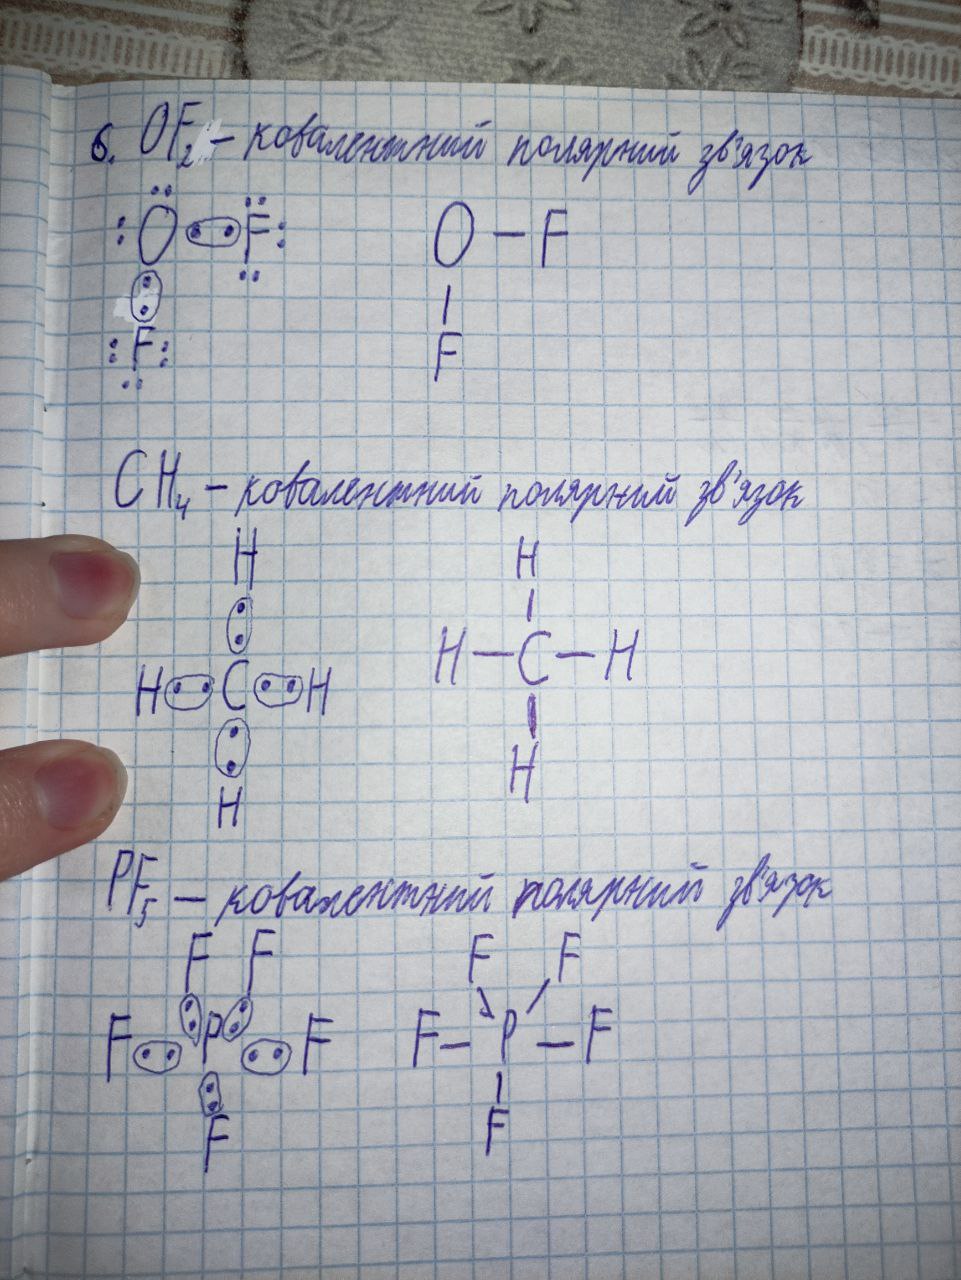 6. OF₂ – ковалентний полярний зв'язок
:O : F:
:F:
O – F
|
F
CH₄ – ковалентний полярний зв'язок
H
H : C : H
H
H
|
H – C – H
|
H
PF₅ – ковалентний полярний зв'язок
F F
F : P : F
F
F F
\ /
F – P – F
|
F